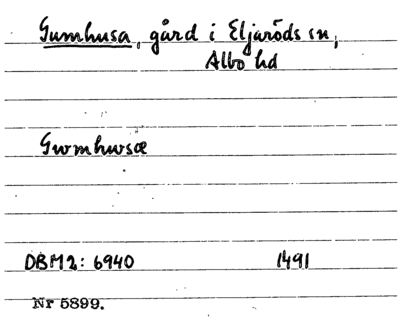 Gumhusa, gård i Eljaröds sn,
Albo hd
Gwmhwsæ
DBM2: 6940 1491
Nr 5899.